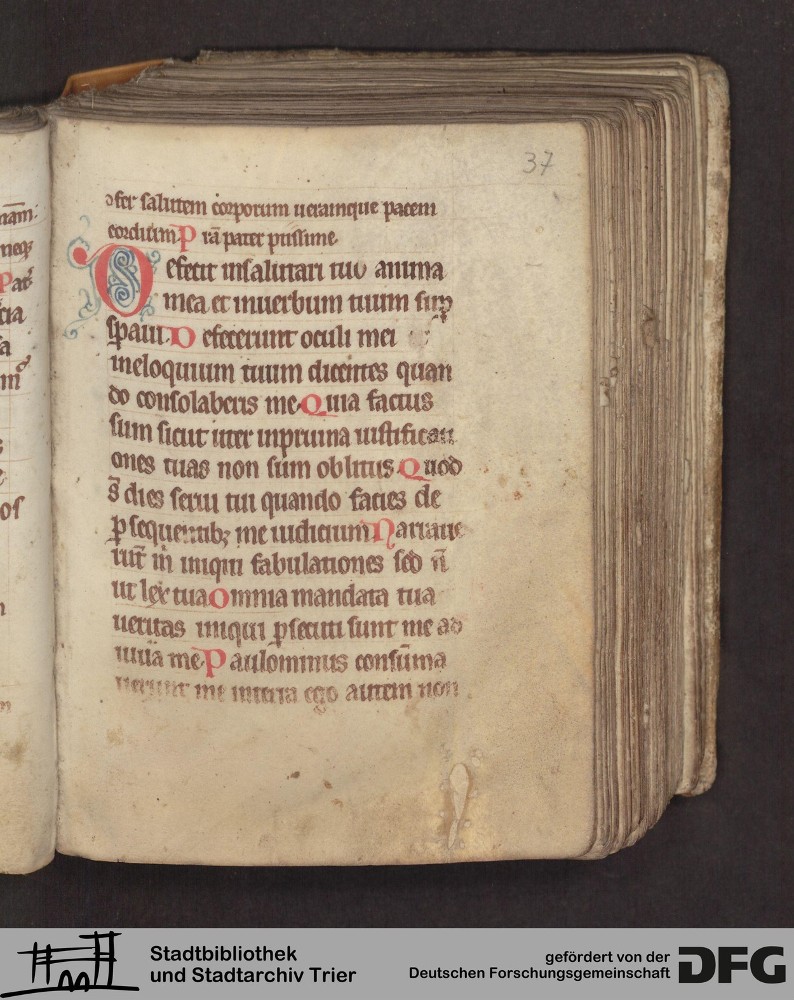 37
ↄfer salutem corporum ueramque pacem
cordium P rā pater piissime
Defecit insalutari tuo anima
mea et inuerbum tuum sup
spaui D efecerunt oculi mei
ineloquium tuum dicentes quan
do consolaberis me Quia factus
sum sicut uter inpruina iustificati
ones tuas non sum oblitus Quod
s̄ dies serui tui quando facies de
ꝑsequentibꝫ me iudicium Narraue
rūt m̄ iniqui fabulationes sed n̄
ut lex tua Omnia mandata tua
ueritas iniqui ꝑsecuti sunt me ad
iuua me Paulominus consūma
uerunt me interra ego autem non
Stadtbibliothek
und Stadtarchiv Trier
gefördert von der
Deutschen Forschungsgemeinschaft
DFG